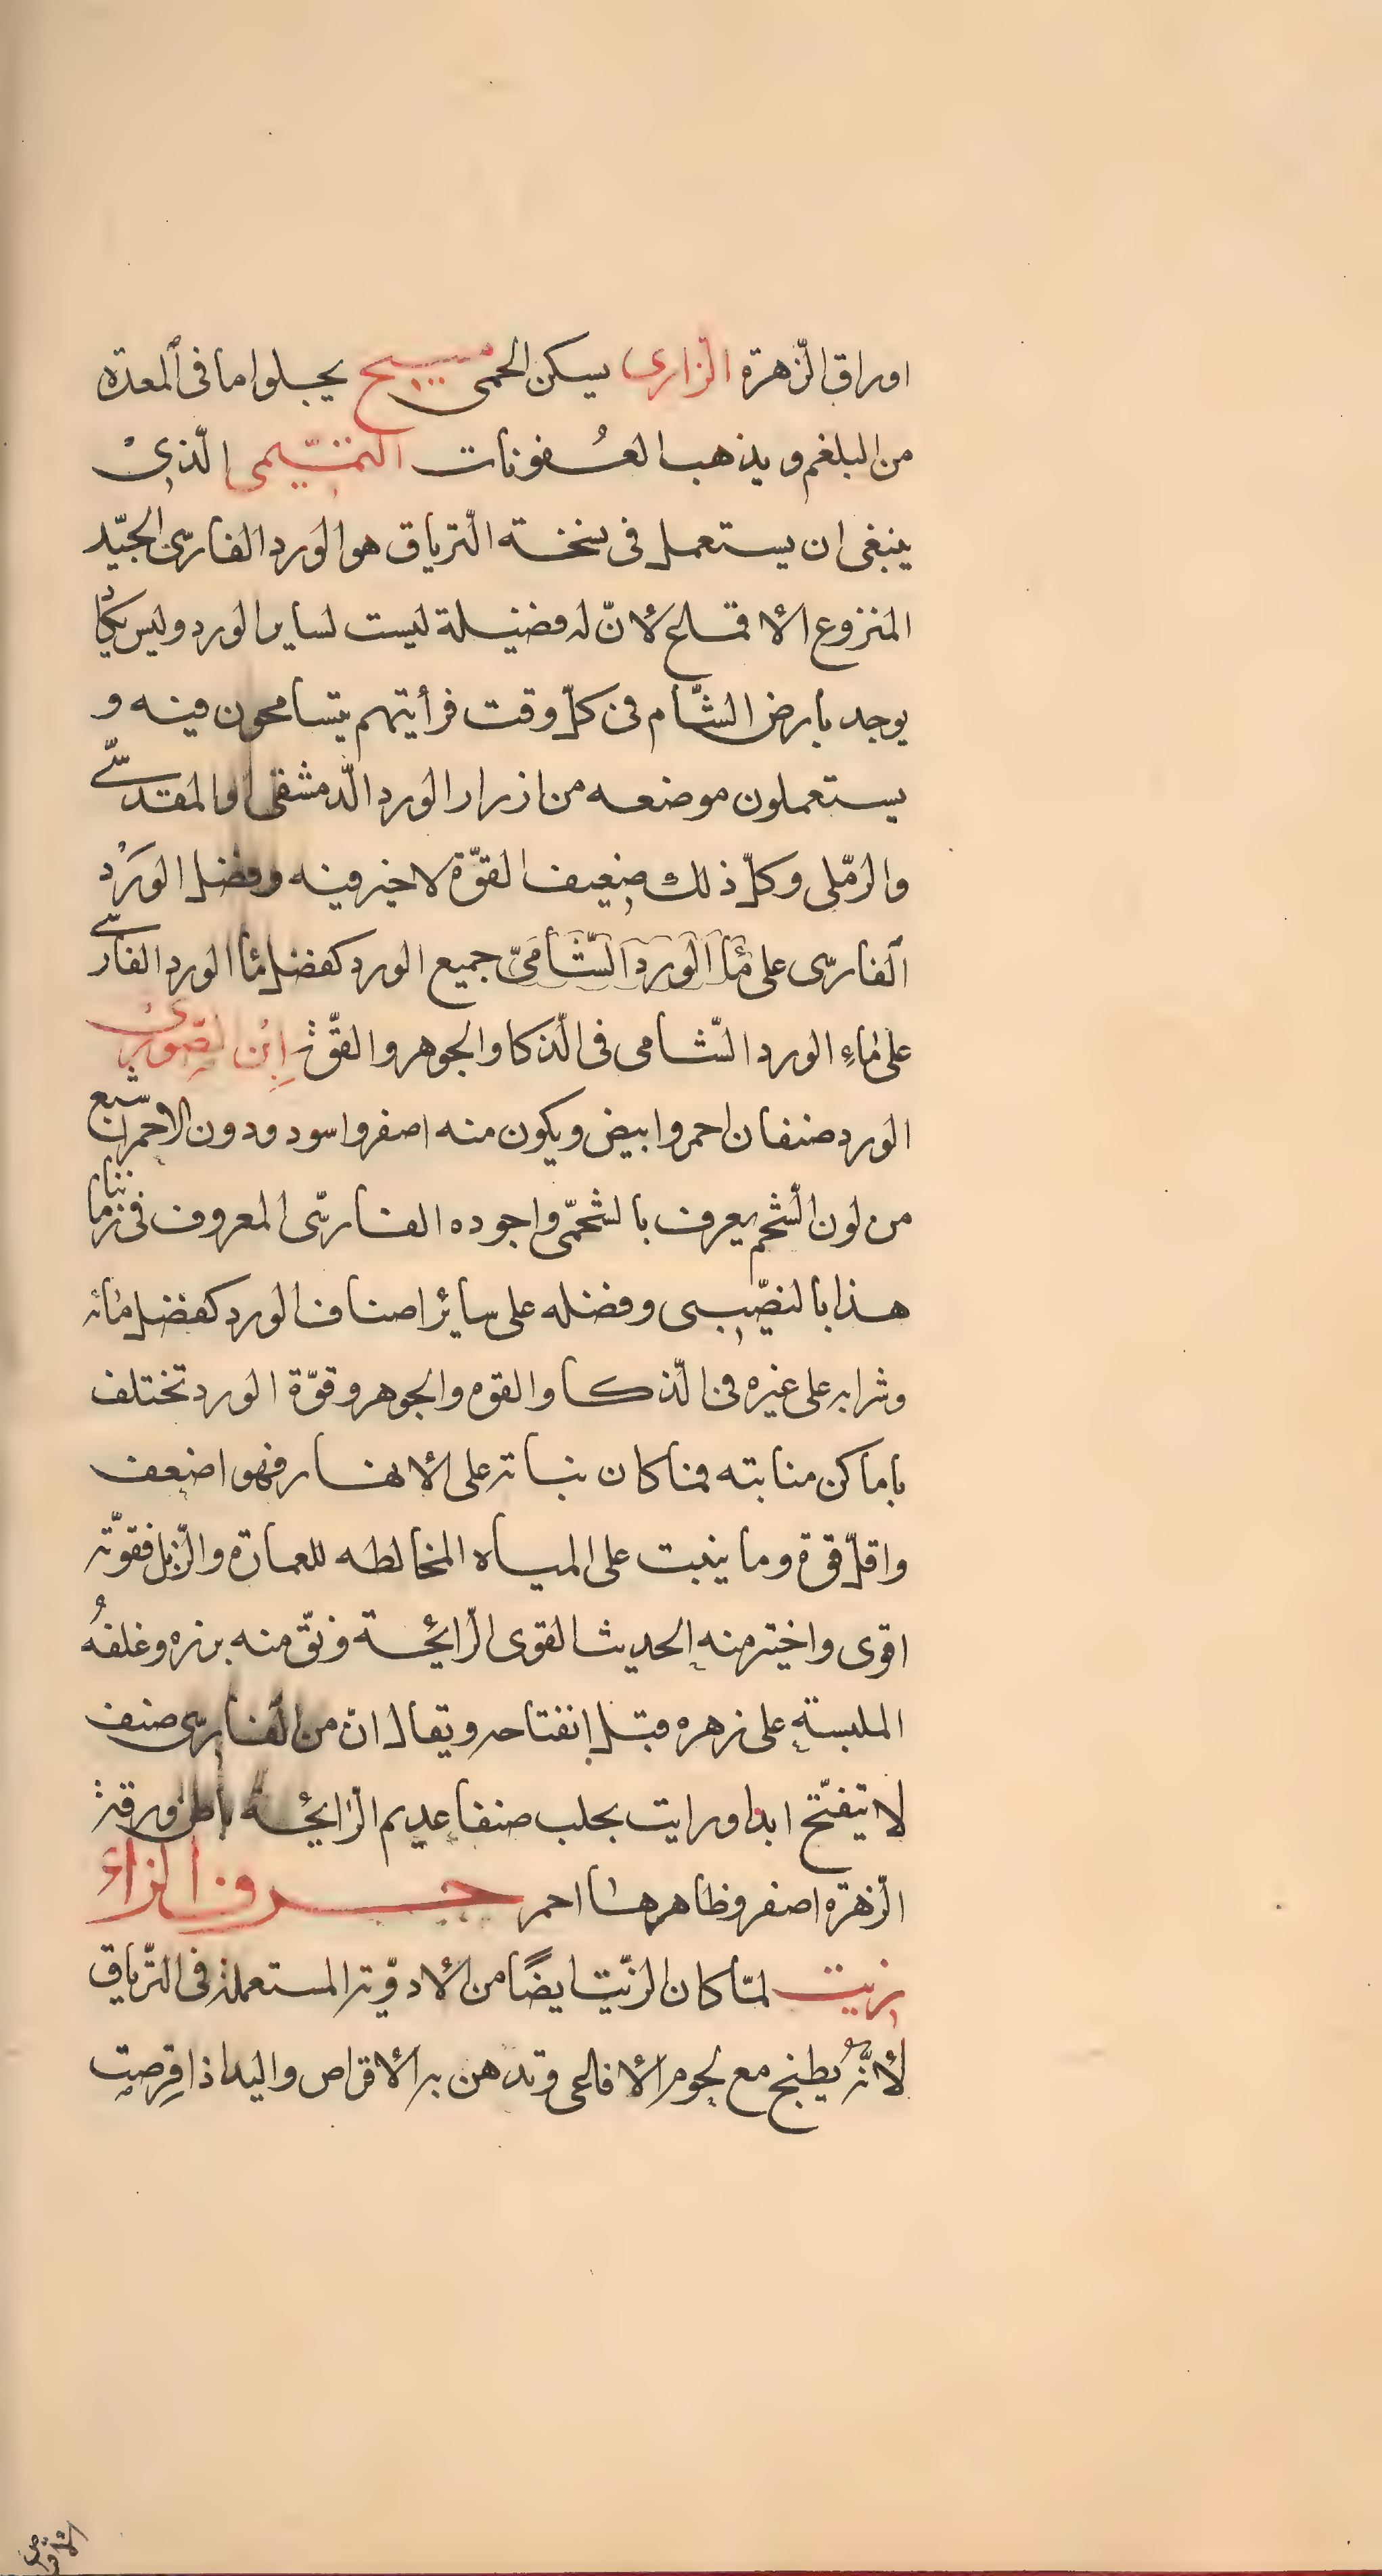 اوراق الزّهرة الزارى يسكن الحمى مسيح يجلوا ما فى المعدة
من البلغم و يذهب العُفونات التمّيمى الّذىْ
ينبغى ان يستعمل فى نسخة الّترياق هو الورد الفارسّى الجيّد
المنزوع الأقماع لأنّ له فضيلة ليست لساير الورد وليس يكاد
يوجد بارض الشّام فى كلّ وقت فرأيتهم يتسامحون فيه و
يستعملون موضعه من ازرار الورد الّدمشقى او المقدسّى
والرّملى وكلّ ذلك ضعيف القوّة لا خير فيه وفضل الوَرْد
الفارسى على مٰاء الورد الشّامَىّ جميع الورد كفضل مٰاء الورد الفارسّى
على مٰاءِ الورد الشّامى فى الّذكا والجوهر والقوّة اِبْن الصّورىْ
الورد صنفان احمر وابيض ويكون منه اصفر واسود ودون الاحمر اشبع
من لون الشّحم يعرف بالشحمّى واجوده الفارسّى المعروف فى زماننا
هذا بالنصّيبى وفضله على سائر اصناف الورد كفضل مٰائه
وشرابه على غيره فى الّذكا والقوه والجوهر وقوّة الورد تختلف
باماكن منابته فما كان نباته على الأنهار فهو اضعف
واقلّ قوة وما ينبت على المياه المخالطه للعمارة والزّبل فقوّته
اقوى واختر منه الحديث القوى الرّائحة ونقّ منه بزره وغلفهُ
الملبسة على زهره قبل انفتاحه ويقال انّ من الفارسّى صنف
لا يتفتّح ابدا ورايت بحلب صنفا عديم الرّايحة باطن ورقة
الزّهرة اصفر وظاهرهٰا احمر حرف الزاء
زيت لمّا كان الزّيت ايضًا من الأدوّية المستعملة فى التّرياق
لأنّهُ يطبخ مع لحوم الأفاعى وتدهن به الأقراص واليد اذا قرصت
الأقراص